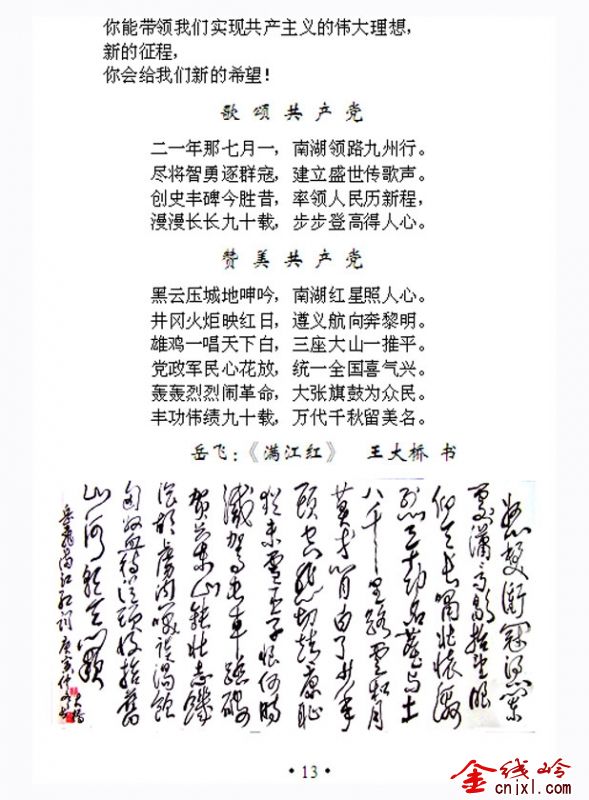 你能带领我们实现共产主义的伟大理想，
新的征程，
你会给我们新的希望！
歌颂共产党
二一年那七月一，南湖领路九州行。
尽将智勇逐群寇，建立盛世传歌声。
创史丰碑今胜昔，率领人民历新程，
漫漫长长九十载，步步登高得人心。
赞美共产党
黑云压城地呻吟，南湖红星照人心。
井冈火炬映红日，遵义航向奔黎明。
雄鸡一唱天下白，三座大山一推平。
党政军民心花放，统一全国喜气兴。
轰轰烈烈闹革命，大张旗鼓为众民。
丰功伟绩九十载，万代千秋留美名。
岳飞：《满江红》 王大桥 书
怒髮衝冠凭栏
处潇潇雨歇抬望眼
仰天长啸壮怀激
烈三十功名尘与土
八千里路云和月
莫等闲白了少年
头空悲切靖康耻
犹未雪臣子恨何时
灭驾长车踏破
贺兰山缺壮志饥
餐胡虏肉笑谈渴饮
匈奴血待从头收拾旧
山河朝天阙
岳飞满江红词
·13·
金线岭
cnjxl.com